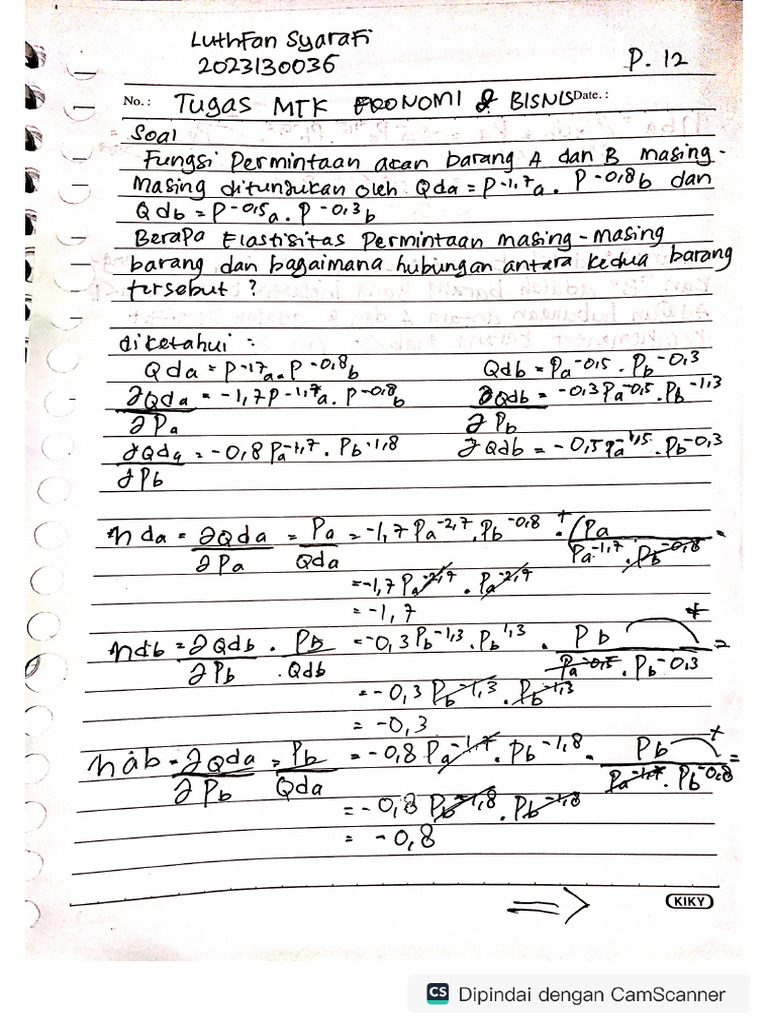 Luthfan Syarafi
2023130036
P. 12
No.: Tugas MTK EKONOMI & BISNIS Date.:
Soal
Fungsi Permintaan akan barang A dan B masing-
masing ditunjukan oleh Qda = P^-1,7a . P^-0,8b dan
Qdb = P^-0,5a . P^-0,3b
Berapa Elastisitas Permintaan masing-masing
barang dan bagaimana hubungan antara kedua barang
tersebut ?
diketahui :
Qda = P^-17a . P^-0,8b Qdb = Pa^-0,5 . Pb^-0,3
∂Qda = -1,7P^-1,7a . P^-0,8b ∂Qdb = -0,3Pa^-0,5 . Pb^-1,3
∂Pa ∂Pb
∂Qda = -0,8 Pa^-1,7 . Pb^-1,8 ∂Qdb = -0,5Pa^-1,5 . Pb^-0,3
∂Pb
η da = ∂Qda = Pa = -1,7 Pa^-2,7 . Pb^-0,8 . + (Pa =
∂Pa Qda Pa^-1,7 . Pb^-0,8
= -1,7 Pa^-2,7 . Pa^2,7
= -1,7
ηdb = ∂Qdb . Pb = -0,3 Pb^-1,3 . Pb^1,3 . Pb + =
∂Pb . Qdb Pa^-0,5 . Pb^-0,3
= -0,3 Pb^-1,3 . Pb^-1,3
= -0,3
ηab = ∂Qda = Pb = -0,8 Pa^-1,7 . Pb^-1,8 . Pb + =
∂Pb Qda Pa^-1,7 . Pb^-0,8
= -0,8 Pb^-1,8 . Pb^-1,8
= -0,8
⇒
KIKY
CS Dipindai dengan CamScanner